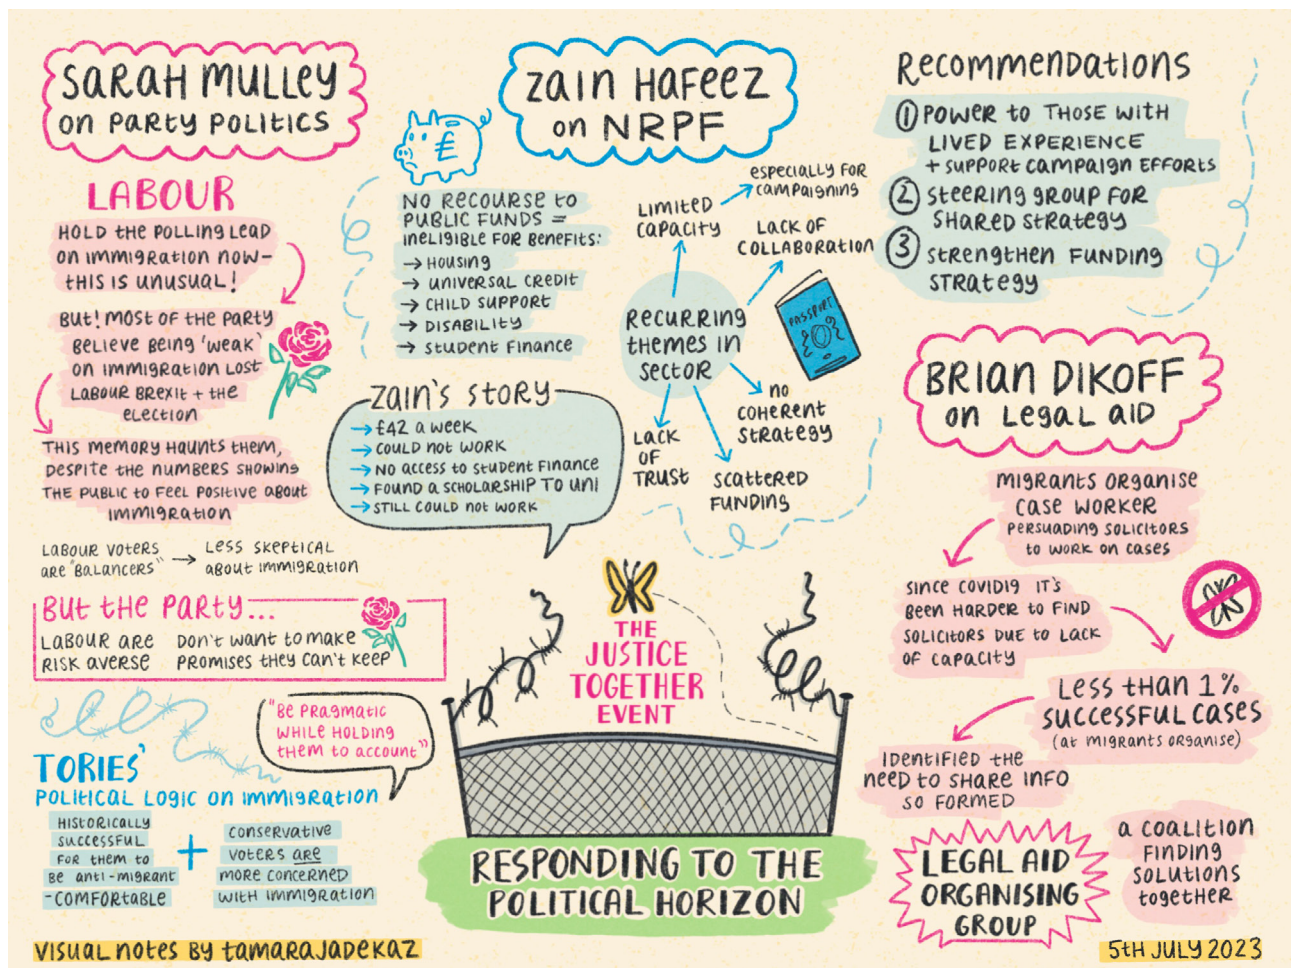 SARAH MULLEY
on PARTY POLITICS
LABOUR
HOLD THE POLLING LEAD
ON IMMIGRATION NOW-
THIS IS UNUSUAL!
BUT! MOST OF THE PARTY
BELIEVE BEING 'WEAK'
ON IMMIGRATION LOST
LABOUR BREXIT + THE
ELECTION
THIS MEMORY HAUNTS THEM,
DESPITE THE NUMBERS SHOWING
THE PUBLIC TO FEEL POSITIVE ABOUT
IMMIGRATION
LABOUR VOTERS
ARE "BALANCERS"
→
LESS SKEPTICAL
ABOUT IMMIGRATION
BUT THE PARTY...
LABOUR ARE
RISK AVERSE
DON'T WANT TO MAKE
PROMISES THEY CAN'T KEEP
"BE PRAGMATIC
WHILE HOLDING
THEM TO ACCOUNT"
TORIES'
POLITICAL LOGIC ON IMMIGRATION
HISTORICALLY
SUCCESSFUL
FOR THEM TO
BE ANTI-MIGRANT
-COMFORTABLE
+
CONSERVATIVE
VOTERS ARE
MORE CONCERNED
WITH IMMIGRATION
VISUAL NOTES BY TAMARAJADEKAZ
ZAIN HAFEEZ
on NRPF
£
NO RECOURSE TO
PUBLIC FUNDS =
INELIGIBLE FOR BENEFITS:
→ HOUSING
→ UNIVERSAL CREDIT
→ CHILD SUPPORT
→ DISABILITY
→ STUDENT FINANCE
ZAIN'S STORY
→ £42 A WEEK
→ COULD NOT WORK
→ NO ACCESS TO STUDENT FINANCE
→ FOUND A SCHOLARSHIP TO UNI
→ STILL COULD NOT WORK
RECURRING
THEMES IN
SECTOR
LIMITED
CAPACITY
ESPECIALLY FOR
CAMPAIGNING
LACK OF
COLLABORATION
PASSPORT
NO
COHERENT
STRATEGY
SCATTERED
FUNDING
LACK
OF
TRUST
THE
JUSTICE
TOGETHER
EVENT
RESPONDING TO THE
POLITICAL HORIZON
RECOMMENDATIONS
1 POWER TO THOSE WITH
LIVED EXPERIENCE
+ SUPPORT CAMPAIGN EFFORTS
2 STEERING GROUP FOR
SHARED STRATEGY
3 STRENGTHEN FUNDING
STRATEGY
BRIAN DIKOFF
on LEGAL AID
MIGRANTS ORGANISE
CASE WORKER
PERSUADING SOLICITORS
TO WORK ON CASES
SINCE COVID19 IT'S
BEEN HARDER TO FIND
SOLICITORS DUE TO LACK
OF CAPACITY
LESS THAN 1%
SUCCESSFUL CASES
(at MIGRANTS ORGANISE)
IDENTIFIED THE
NEED TO SHARE INFO
SO FORMED
LEGAL AID
ORGANISING
GROUP
a COALITION
FINDING
SOLUTIONS
together
5TH JULY 2023